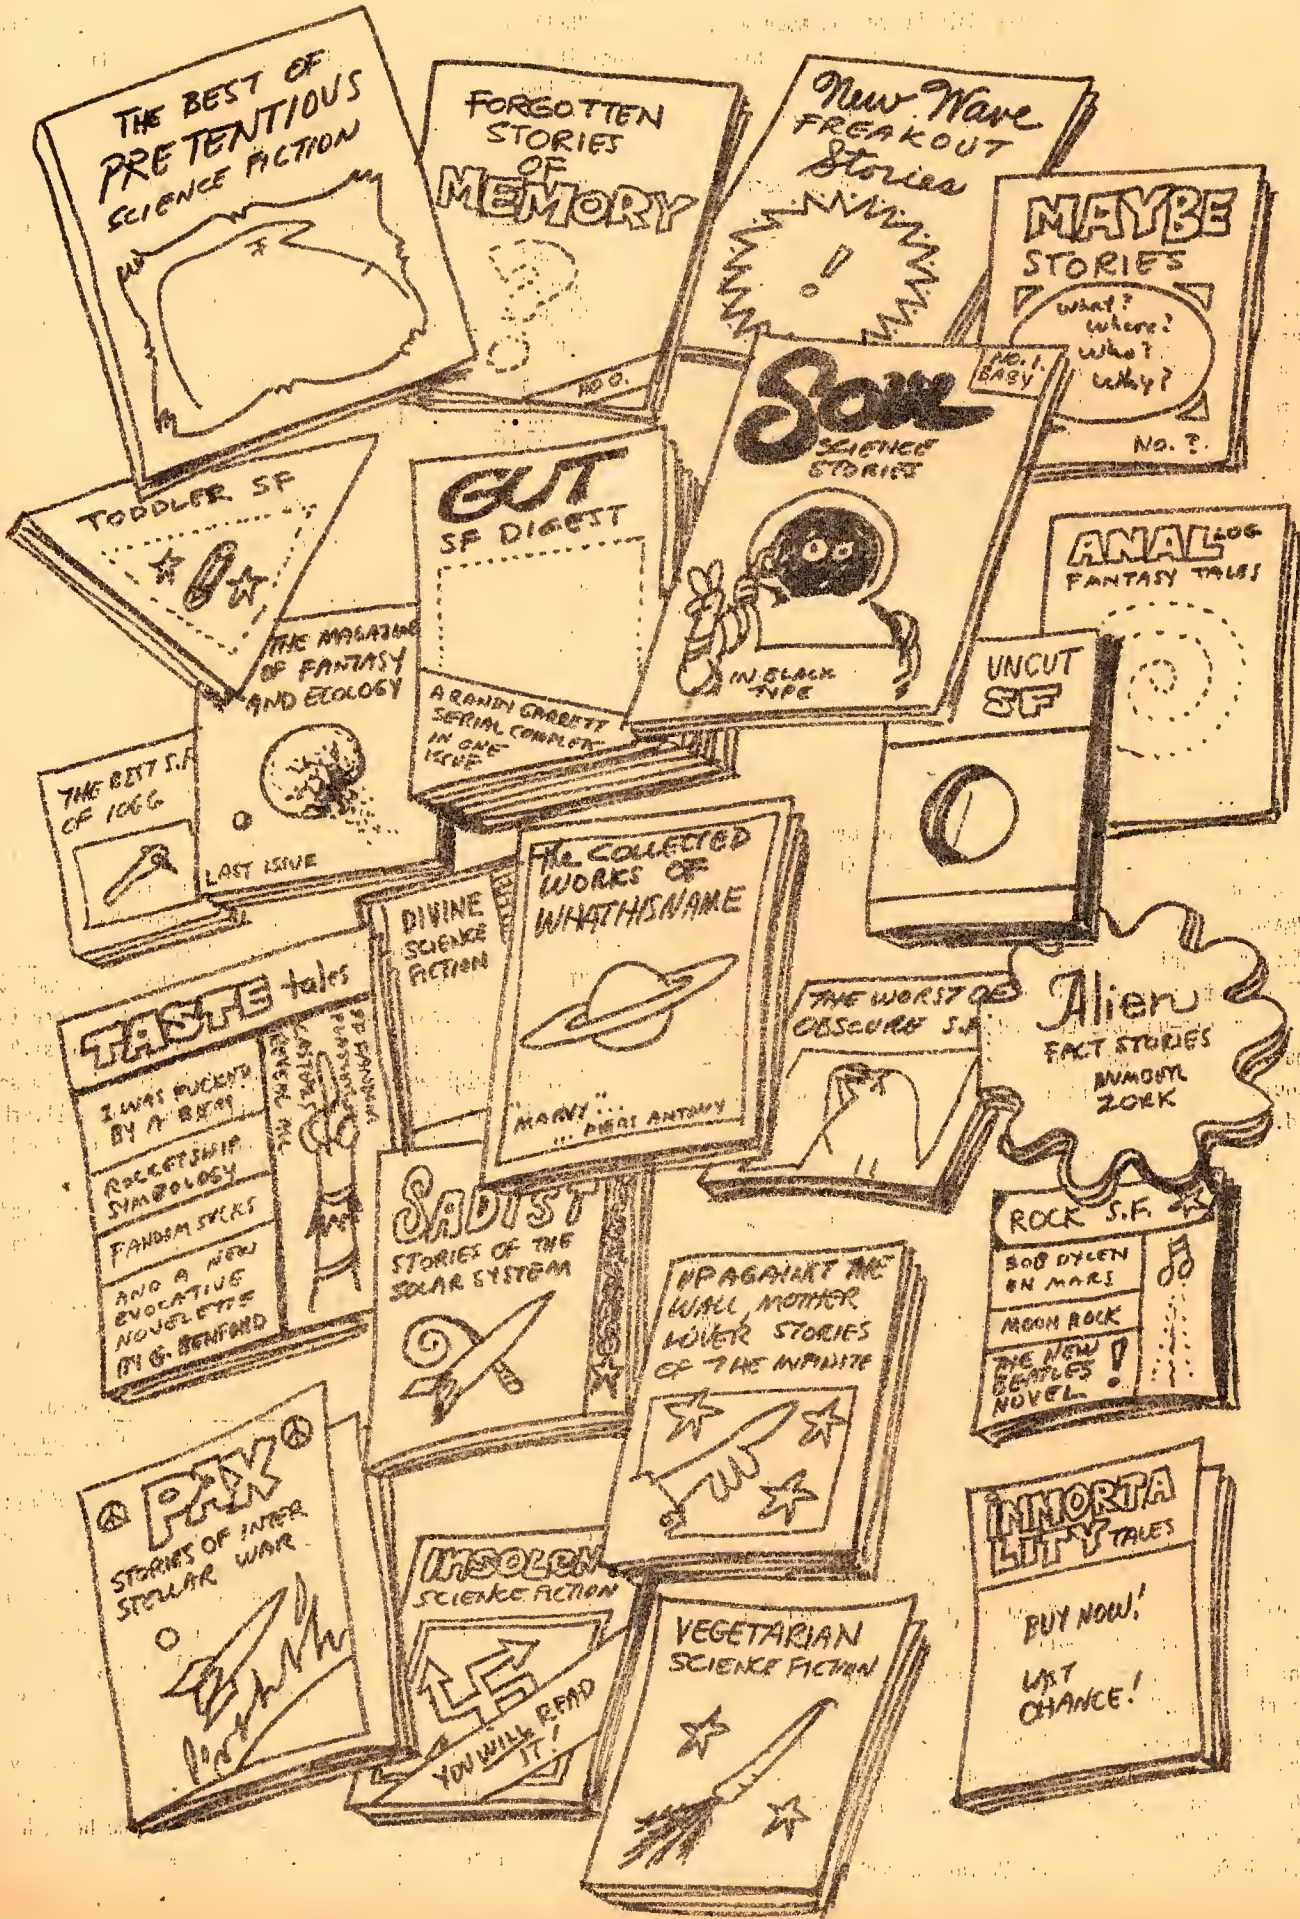 THE BEST OF
PRETENTIOUS
SCIENCE FICTION
FORGOTTEN
STORIES
OF
MEMORY
?
NO O.
New Wave
FREAKOUT
Stories
!
MAYBE
STORIES
What?
Where?
Who?
Why?
NO. ?.
SOUL
SCIENCE
STORIES
NO. 1.
BABY
IN BLACK
TYPE
TODDLER SF
GUT
SF DIGEST
A RANDY GARRETT
SERIAL COMPLETE
IN ONE
ISSUE
ANALLOG
FANTASY TALES
THE MAGAZINE
OF FANTASY
AND ECOLOGY
LAST ISSUE
UNCUT
SF
THE BEST S.F.
OF 1066
DIVINE
SCIENCE
FICTION
The COLLECTED
WORKS OF
WHATHISNAME
"MARVY"...
... PIERS ANTONY
THE WORST OF
OBSCURE S.F.
Alien
FACT STORIES
NUMBER
ZORK
TASTE tales
I WAS FUCKED
BY A BEM
ROCKETSHIP
SYMBOLOGY
FANDOM SUCKS
AND A NEW
EVOCATIVE
NOVELETTE
BY G. BENFORD
SADIST
STORIES OF THE
SOLAR SYSTEM
UP AGAINST THE
WALL, MOTHER
LOVER STORIES
OF THE INFINITE
ROCK S.F.
BOB DYLEN
ON MARS
MOON ROCK
THE NEW
BEATLES
NOVEL!
PAX
STORIES OF INTER
STELLAR WAR
INSOLEN
SCIENCE FICTION
YOU WILL READ
IT!
VEGETARIAN
SCIENCE FICTION
IMMORTA
LITY TALES
BUY NOW!
LAST
CHANCE!